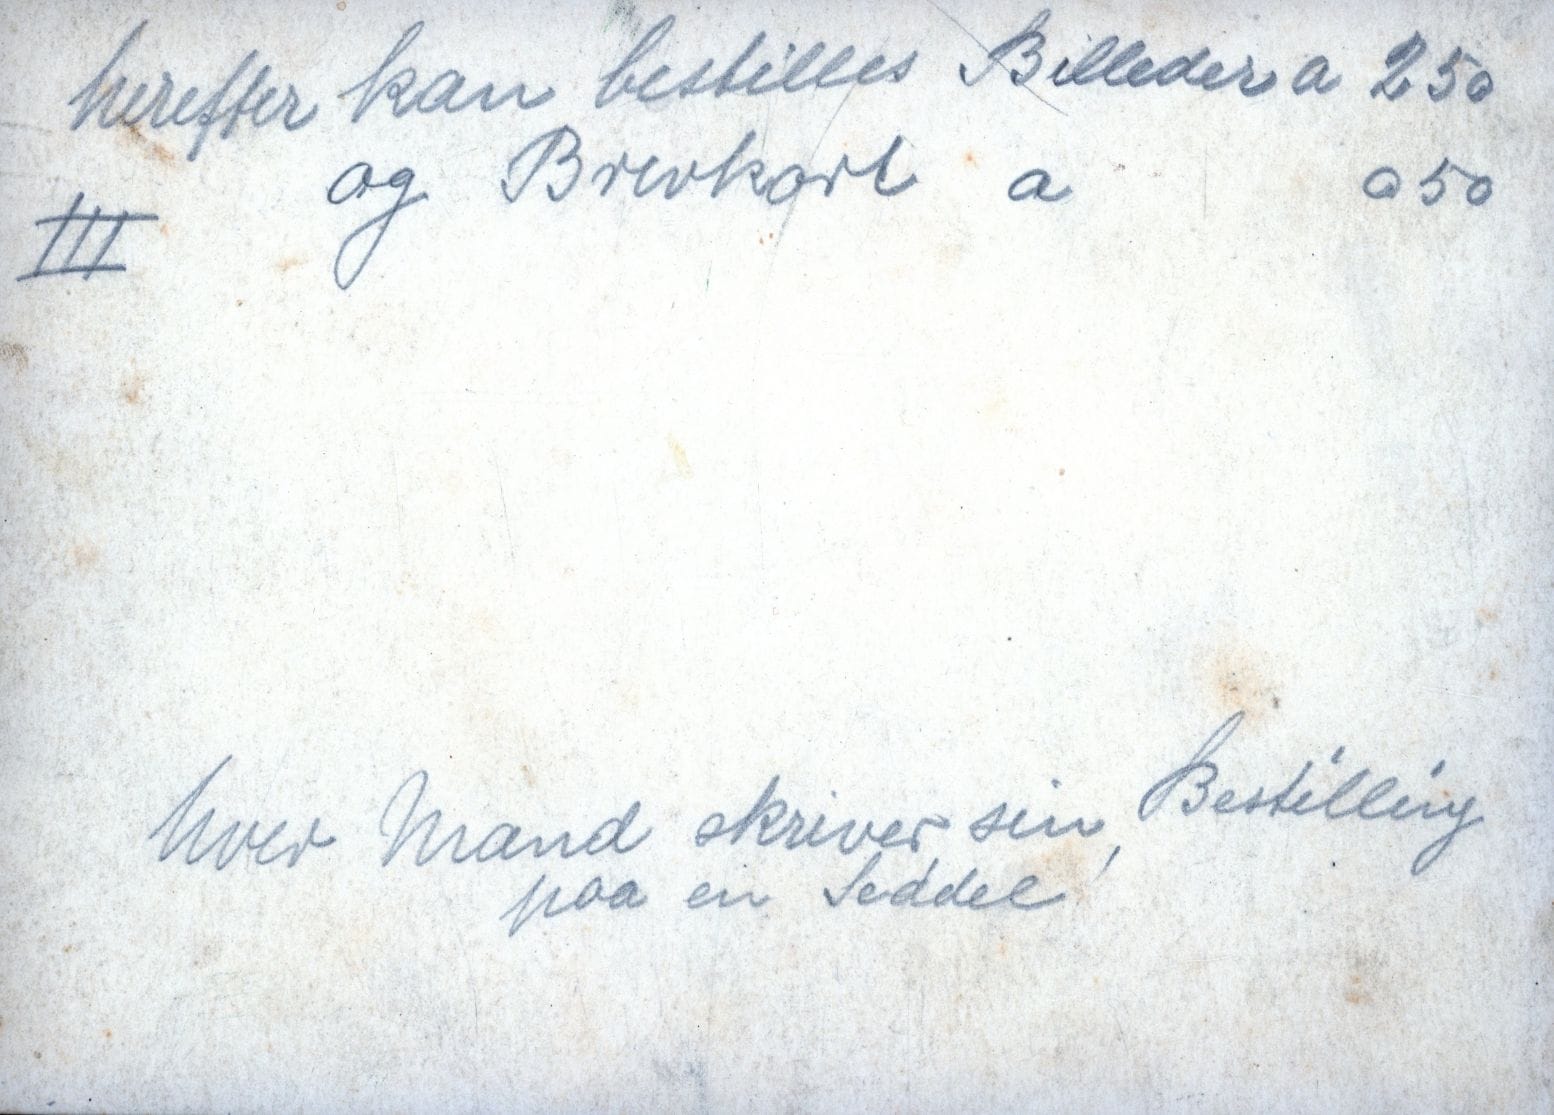 herefter kan bestilles Billeder a 2 50
og Brevkort a 0 50
III
hver Mand skriver sin Bestilling
paa en Seddel